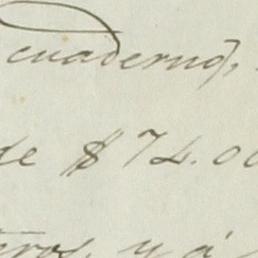 cuaderno,
de $74.00
tros, y á